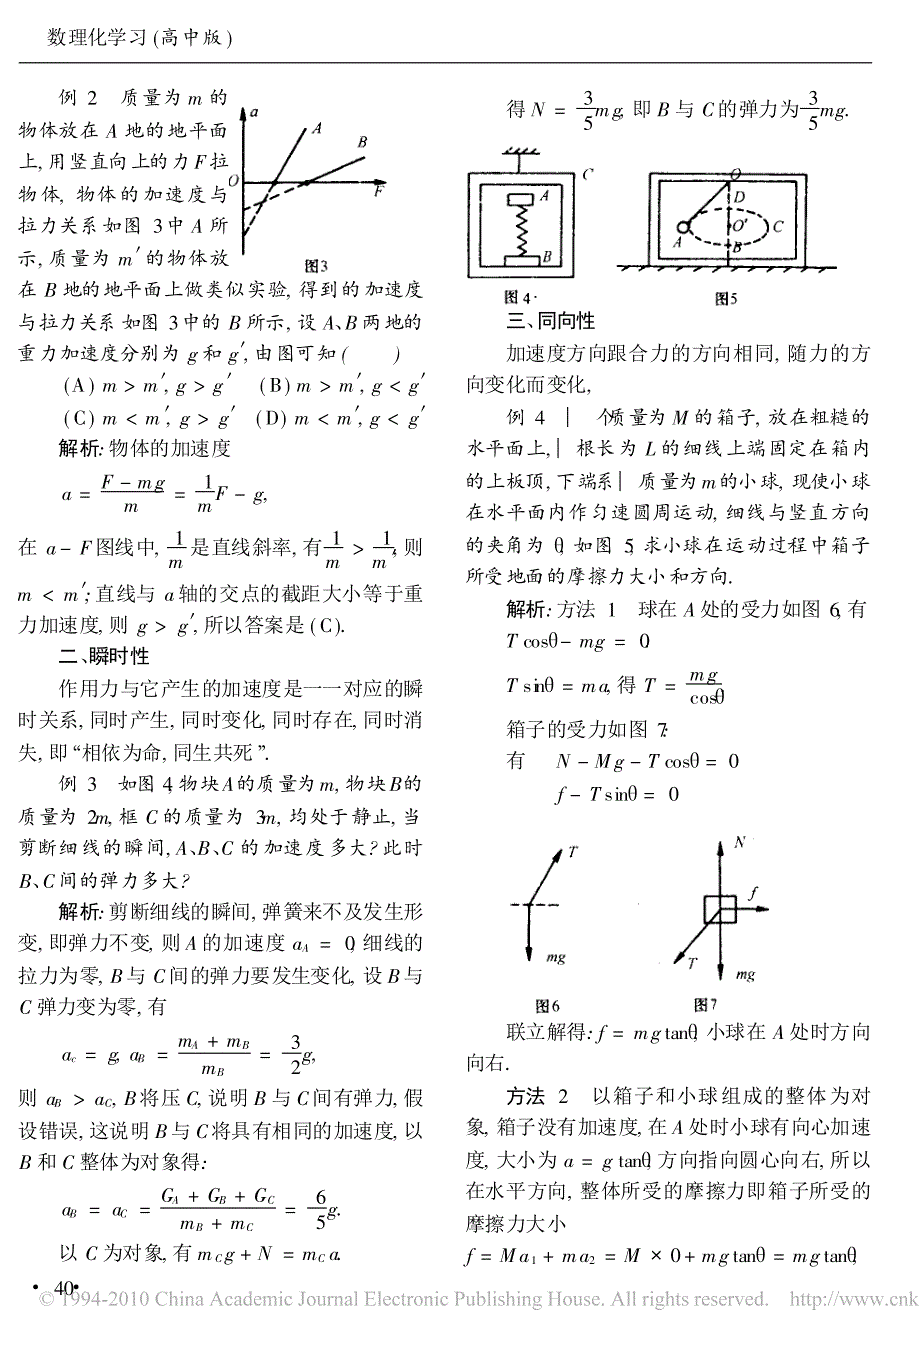 数理化学习(高中版)
例 2 质量为 m 的
物体放在 A 地的地平面
上,用竖直向上的力 F 拉
物体, 物体的加速度与
拉力关系如图 3中 A 所
示,质量为 m′的物体放
a
A
B
O
F
图3
在 B 地的地平面上做类似实验, 得到的加速度
与拉力关系如图 3中的 B 所示, 设 A、B 两地的
重力加速度分别为 g 和 g′, 由图可知( )
(A) m > m′, g > g′ (B) m > m′, g < g′
(C) m < m′, g > g′ (D) m < m′, g < g′
解析: 物体的加速度
a = F - mg / m = 1/m F - g,
在 a - F 图线中, 1/m 是直线斜率, 有 1/m > 1/m′, 则
m < m′; 直线与 a 轴的交点的截距大小等于重
力加速度, 则 g > g′, 所以答案是 (C).
二、瞬时性
作用力与它产生的加速度是一一对应的瞬
时关系, 同时产生, 同时变化, 同时存在, 同时消
失, 即“相依为命, 同生共死”.
例 3 如图 4,物块A的质量为 m, 物块B的
质量为 2m, 框 C 的质量为 3m, 均处于静止, 当
剪断细线的瞬间, A、B、C 的加速度多大? 此时
B、C 间的弹力多大?
解析: 剪断细线的瞬间, 弹簧来不及发生形
变, 即弹力不变, 则 A 的加速度 aA = 0, 细线的
拉力为零, B 与 C 间的弹力要发生变化, 设 B 与
C 弹力变为零, 有
ac = g, aB = mA + mB / mB = 3/2 g,
则 aB > aC, B 将压 C, 说明 B 与 C 间有弹力, 假
设错误, 这说明 B 与 C 将具有相同的加速度, 以
B 和 C 整体为对象得:
aB = aC = GA + GB + GC / mB + mC = 6/5 g.
以 C 为对象, 有 mCg + N = mCa.
得 N = 3/5 mg, 即 B 与 C 的弹力为 3/5 mg.
C
A
B
图 4
O
D
O′
C
A
B
图5
三、同向性
加速度方向跟合力的方向相同, 随力的方
向变化而变化,
例 4 | 个质量为 M 的箱子, 放在粗糙的
水平面上,| 根长为 L 的细线上端固定在箱内
的上板顶, 下端系| 质量为 m 的小球, 现使小球
在水平面内作匀速圆周运动, 细线与竖直方向
的夹角为 θ, 如图 5, 求小球在运动过程中箱子
所受地面的摩擦力大小和方向.
解析: 方法 1 球在 A 处的受力如图 6, 有
T cosθ - mg = 0
T sinθ = ma, 得 T = mg / cosθ
箱子的受力如图 7:
有 N - Mg - T cosθ = 0
f - T sinθ = 0
T
mg
图6
N
f
T
mg
图7
联立解得: f = mg tanθ, 小球在 A 处时方向
向右.
方法 2 以箱子和小球组成的整体为对
象, 箱子没有加速度, 在 A 处时小球有向心加速
度, 大小为 a = g tanθ, 方向指向圆心向右, 所以
在水平方向, 整体所受的摩擦力即箱子所受的
摩擦力大小
f = Ma1 + ma2 = M × 0 + mg tanθ = mg tanθ,
· 40·
© 1994-2010 China Academic Journal Electronic Publishing House. All rights reserved. http://www.cnk